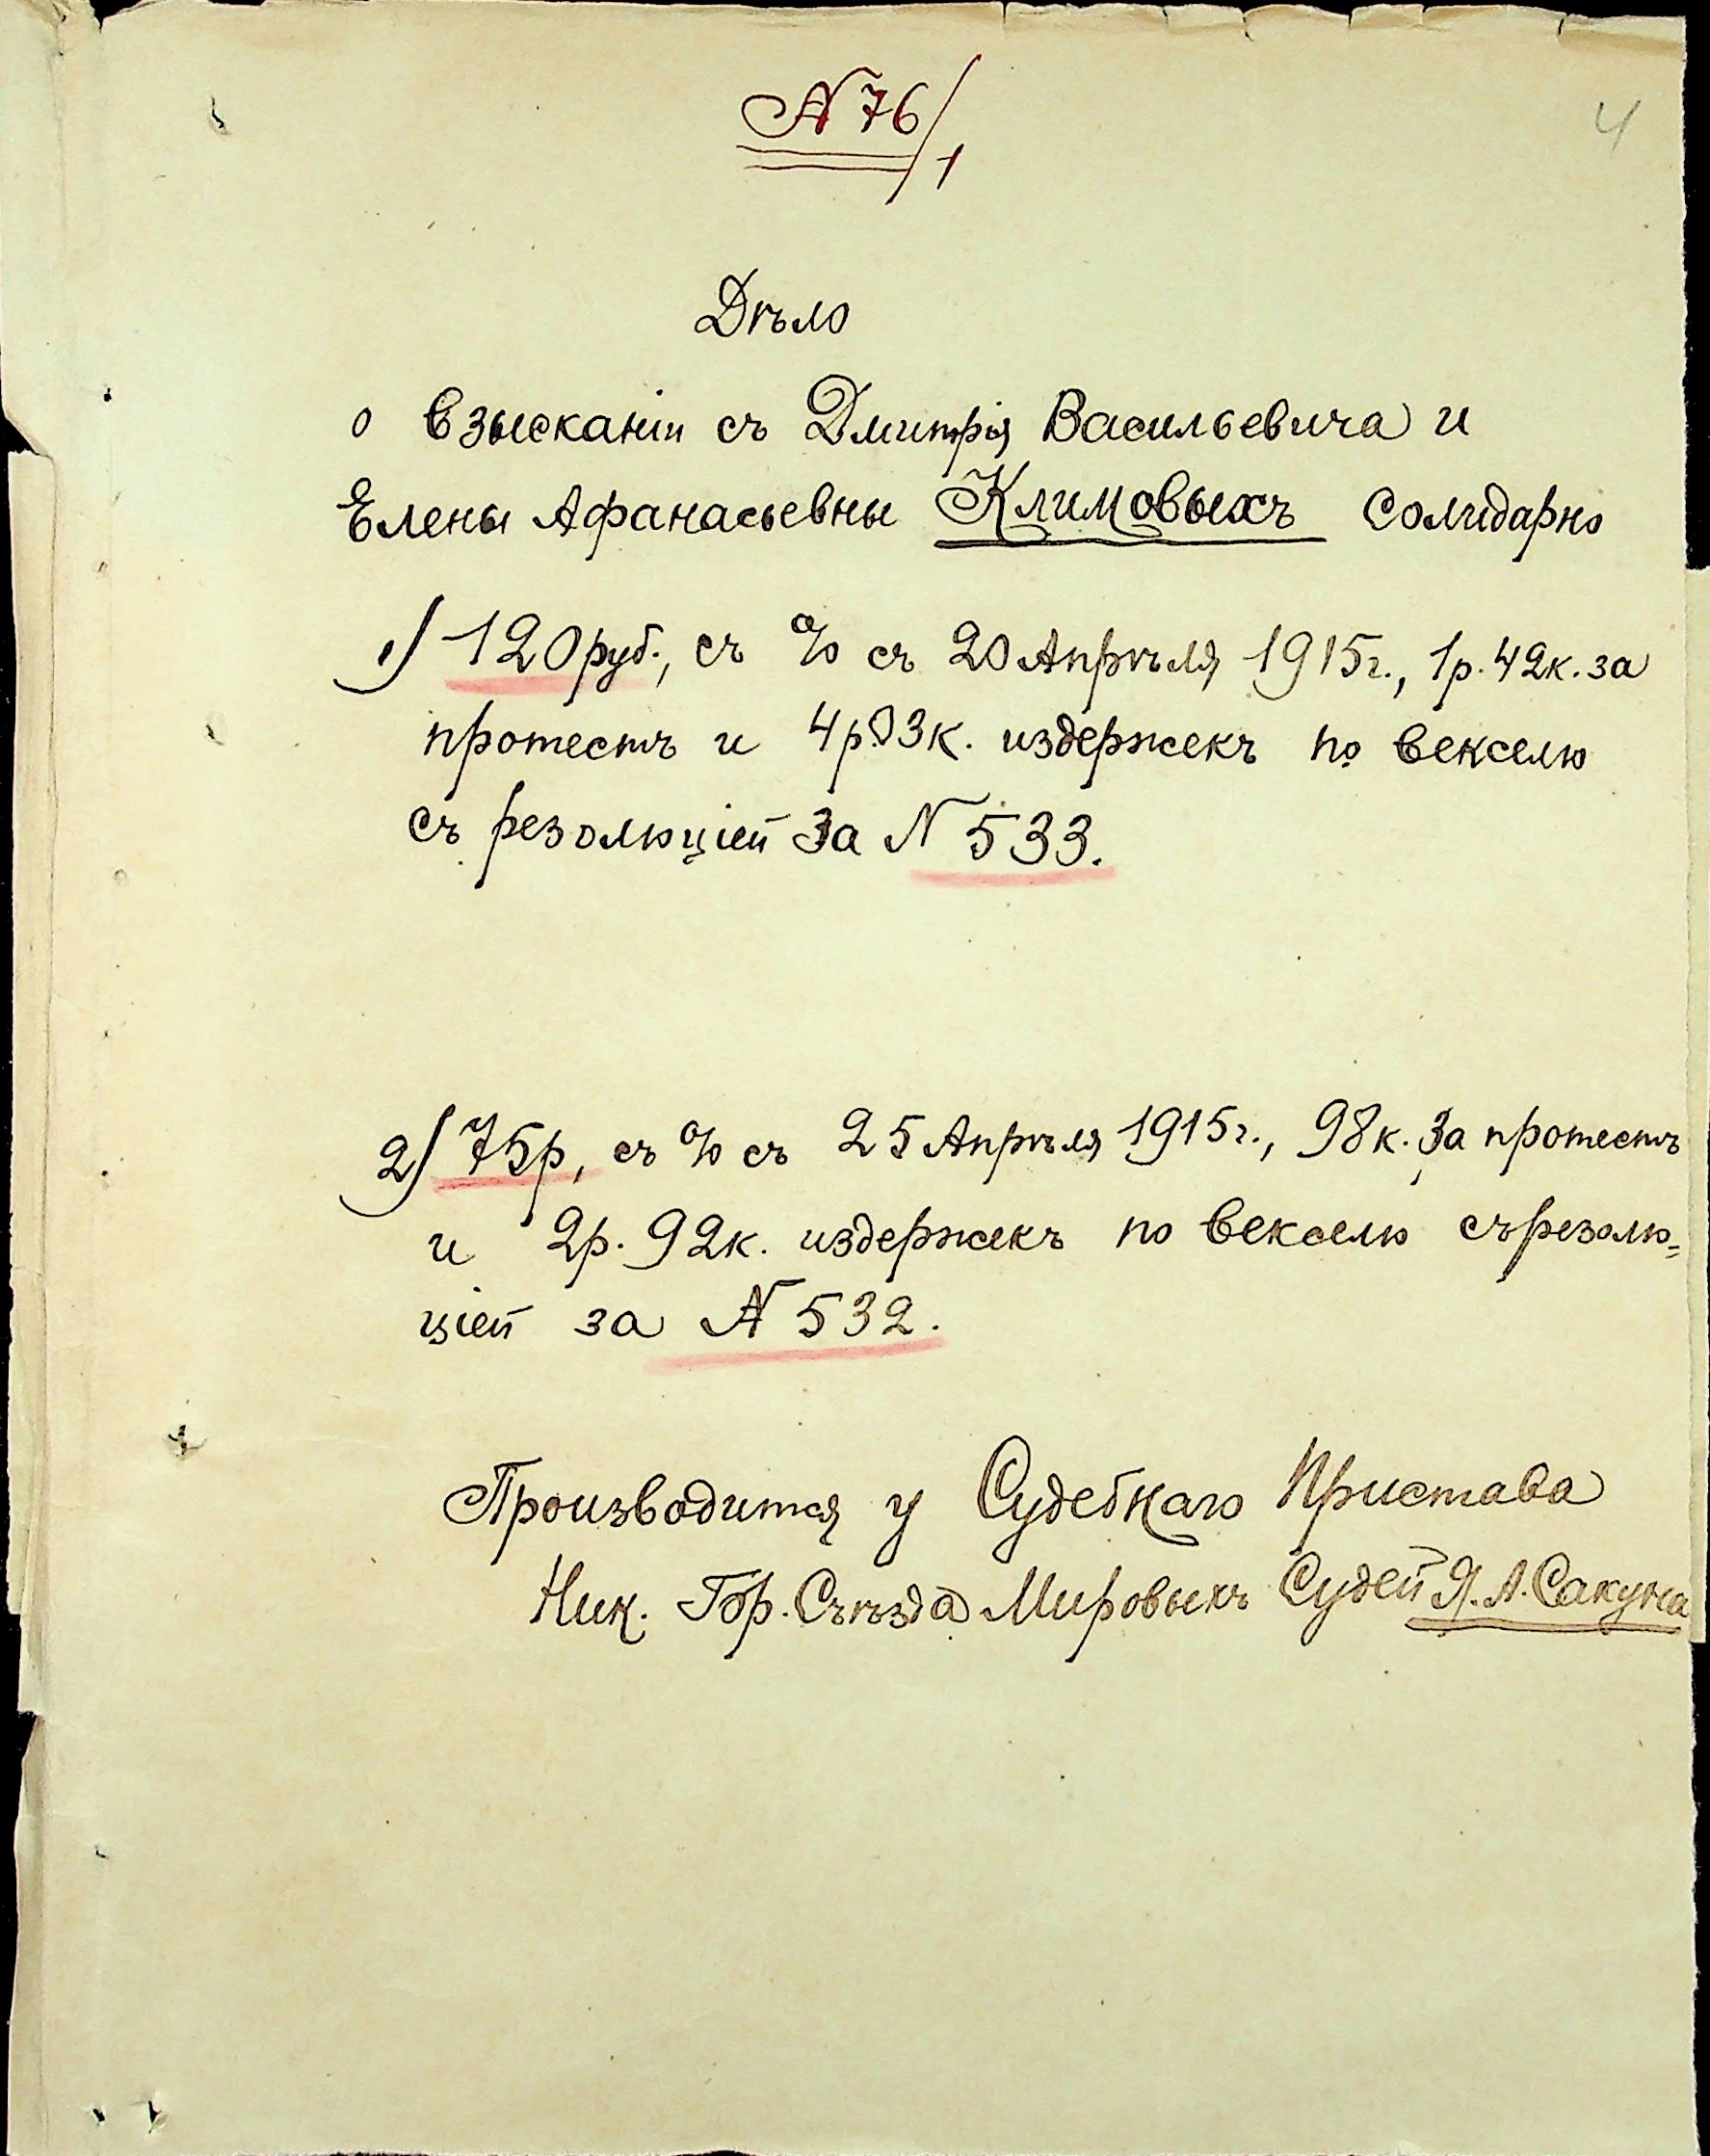 № 76/1
4
Дѣло
о взысканіи съ Дмитрія Васильевича и
Елены Афанасьевны Климовыхъ солидарно
1) 120 руб., съ % съ 20 Апрѣля 1915 г., 1 р. 42 к. за
протестъ и 4 р. 03 к. издержекъ по векселю
съ резолюціей за № 533.
2) 75 р, съ % съ 25 Апрѣля 1915 г., 98 к. за протестъ
и 2 р. 92 к. издержекъ по векселю съ резолю=
ціей за № 532.
Производится у Судебнаго Пристава
Ник. Гор. Съѣзда Мировыхъ Судей Я. А. Сакуна